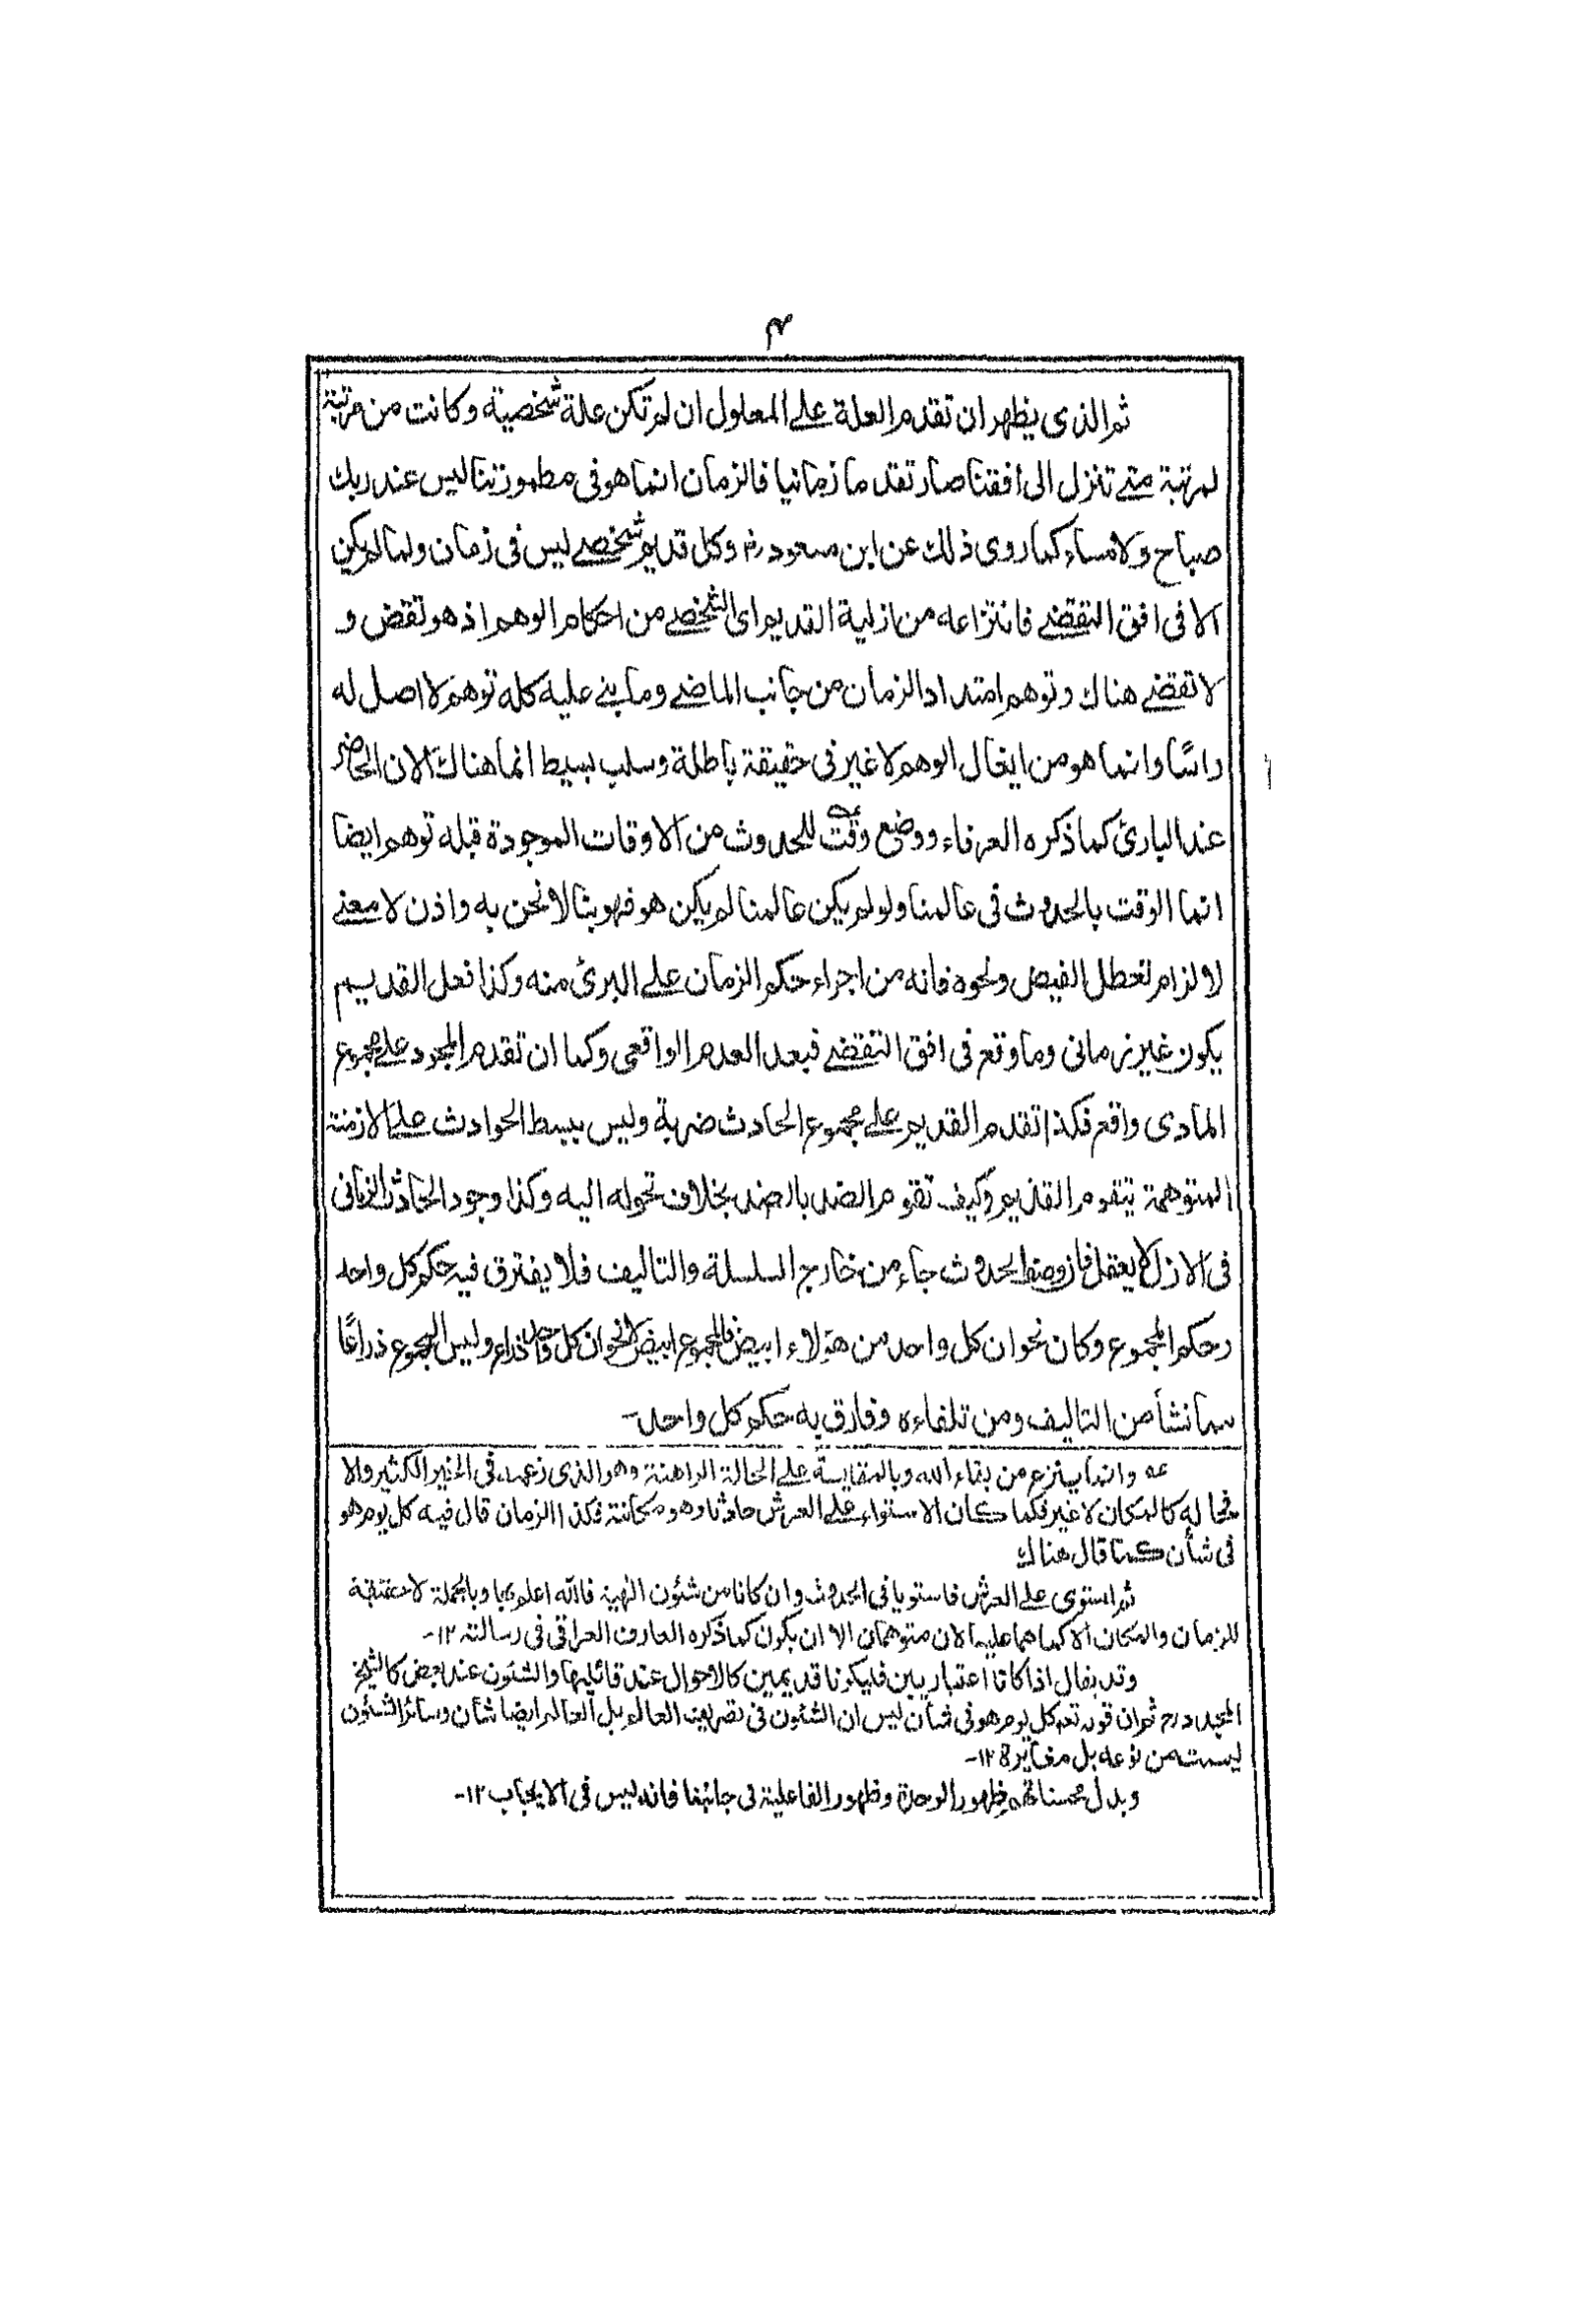 ۴
ثم الذى يظهر ان تقدم العلة على المعلول ان لم تكن علة شخصية وكانت من مرتبة
لمرتبة متى تنزل الى أفقنا صار تقدما زمانيا فالزمان انما هو فى مطمورتنا ليس عند ربك
صباح ولا مساء كما روى ذلك عن ابن مسعود رض وكل قديم شخصى ليس فى زمان ولما لم يكن
الا فى افق التقضى فانتزاعه من ازلية القديم اى الشخصى من احكام الوهم اذ هو تقض و
لا تقضى هناك وتوهم امتداد الزمان من جانب الماضى وما بنى عليه كله توهم لا اصل له
راسًا وانما هو من ايغال الوهم لا غير فى حقيقة باطلة وسلب بسيط انما هناك الان الحاضر
عند البارئ كما ذكره العرفاء ووضع وقت للحدوث من الاوقات الموجودة قبله توهم ايضا
انما الوقت بالحدوث فى عالمنا ولو لم يكن عالمنا لم يكن هو فهو بنا لا نحن به واذن لا معنى
لالزام تعطل الفيض ونحوه فانه من اجراء حكم الزمان على البرئ منه وكذا فعل القديم
يكون غير زمانى وما وقع فى افق التقضى فبعد العدم الواقعى وكما ان تقدم المجرد على مجموع
المادى واقع فكذا تقدم القديم على مجموع الحادث ضربة وليس ببسط الحوادث على الازمنة
المتوهمة يتقوم القديم وكيف تقوم الضد بالضد بخلاف تحوله اليه وكذا وجود الحادث الزمانى
فى الازل لا يعقل فاذ وصف الحدوث جاء من خارج السلسلة والتاليف فلا يفترق فيه حكم كل واحد
وحكم المجموع وكان نحو ان كل واحد من هؤلاء ابيض فالمجموع ابيض لا نحو ان كل واحد ذراع وليس المجموع ذراعًا
مما نشأ من التاليف ومن تلقاءه وفارق به حكم كل واحد-
عه وانما ينزع من بقاء الله وبالمقايسة على الحالة الراهنة وهو الذى زعمه فى الخير الكثير والا
فحاله كالمكان لا غير فكما كان الاستواء على العرش حادثا وهو مكانته فكذا الزمان قال فيه كل يوم هو
فى شأن كما قال هناك
ثم استوى على العرش فاستويا فى الحدوث وان كانا من شئون الٰهية فالله اعلم بها وبالجملة لا حقيقة
للزمان والمكان الا كما هما عليه الان متوهمان الا ان يكون كما ذكره العارف العراقى فى رسالته ۱۲-
وقد يقال اذا كانا اعتباريين فليكونا قديمين كالاحوال عند قائليها والشئون عند بعض كالشيخ
المجدد رح ثم ان قوله تعـ كل يوم هو فى شأن ليس ان الشئون فى تصريف العالم بل العالم ايضا شأن وسائر الشئون
ليست من نوعه بل مغايرة ۱۲-
وبدل ظهور الوحدة وظهور الفاعلية فى جانبنا فانه ليس فى الايجاب ۱۲-